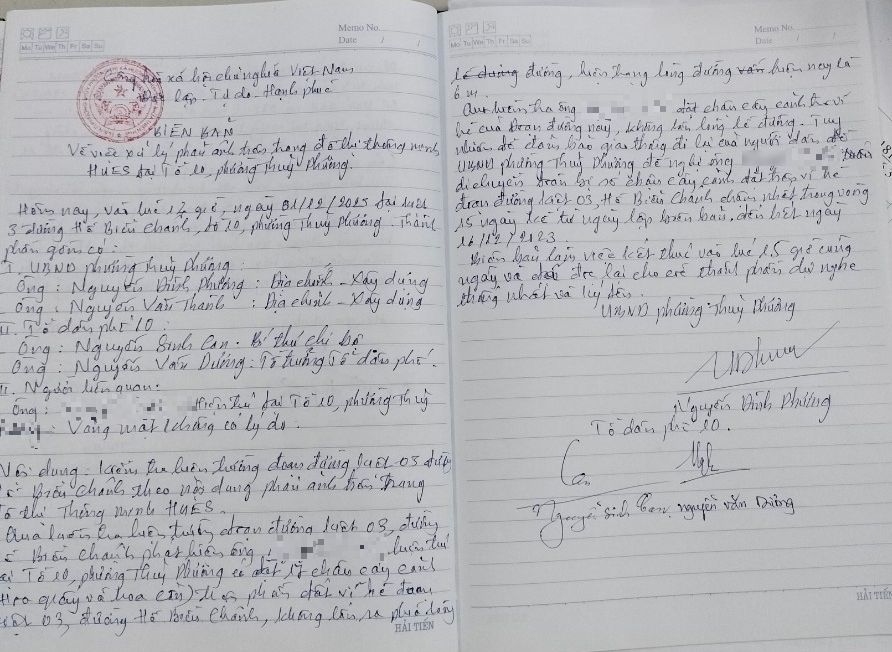 Memo No.
Date / /
Mo Tu We Th Fr Sa Su
Cộng hoà xã hội chủ nghĩa Việt Nam
Độc lập - Tự do - Hạnh phúc
BIÊN BẢN
Về việc xử lý phản ánh trên trang đô thị thông minh
HUES tại Tổ 10, phường Thuỷ Phương.
Hôm nay, vào lúc giờ, ngày 01/12/2023 tại kiệt
3 đường Hồ Biểu Chánh, tổ 10, phường Thuỷ Phương. Thành
phần gồm có:
I, UBND phường Thuỷ Phương:
Ông: Nguyễn Đình Phương: Địa chính - Xây dựng
Ông: Nguyễn Văn Thanh: Địa chính - Xây dựng
II. Tổ dân phố 10:
Ông: Nguyễn Sinh Can. Bí thư chi bộ
Ông: Nguyễn Văn Dưỡng: Tổ trưởng Tổ dân phố.
II. Người liên quan:
Ông: Hiện trú tại Tổ 10, phường Thuỷ
: Vắng mặt không có lý do.
Nội dung: Kiểm tra hiện trường đoạn đường kiệt 03 đường
Hồ Biểu Chánh theo nội dung phản ánh trên trang
đô thị thông minh HUES.
Qua kiểm tra hiện trường đoạn đường kiệt 03, đường
Hồ Biểu Chánh phát hiện ông hiện trú
tại Tổ 10, phường Thuỷ Phương có đặt 17 chậu cây cảnh
trên phần đất vỉa hè đoạn
kiệt 03, đường Hồ Biểu Chánh, không lấn ra phía lòng
HẢI TIẾN
Memo No.
Date / /
Mo Tu We Th Fr Sa Su
lề đường đường, hiện trạng lòng đường hiện nay là
6 m.
Qua kiểm tra ông đặt chậu cây cảnh trên vỉa
hè của đoạn đường này, không lấn lòng lề đường. Tuy
nhiên để đảm bảo giao thông đi lại của người dân
UBND phường Thuỷ Phương đề nghị ông
di chuyển toàn bộ số chậu cây cảnh đặt trên vỉa hè
đoạn đường kiệt 03, Hồ Biểu Chánh chậm nhất trong vòng
15 ngày kể từ ngày lập biên bản, đến hết ngày
16/12/2023.
Biên bản làm việc kết thúc vào lúc 15 giờ cùng
ngày và đọc lại cho các thành phần dự nghe
thống nhất và ký tên.
UBND phường Thuỷ Phương
Nguyễn Đình Phương
Tổ dân phố 10.
Nguyễn Sinh Can. nguyễn văn Dưỡng
HẢI TIẾN